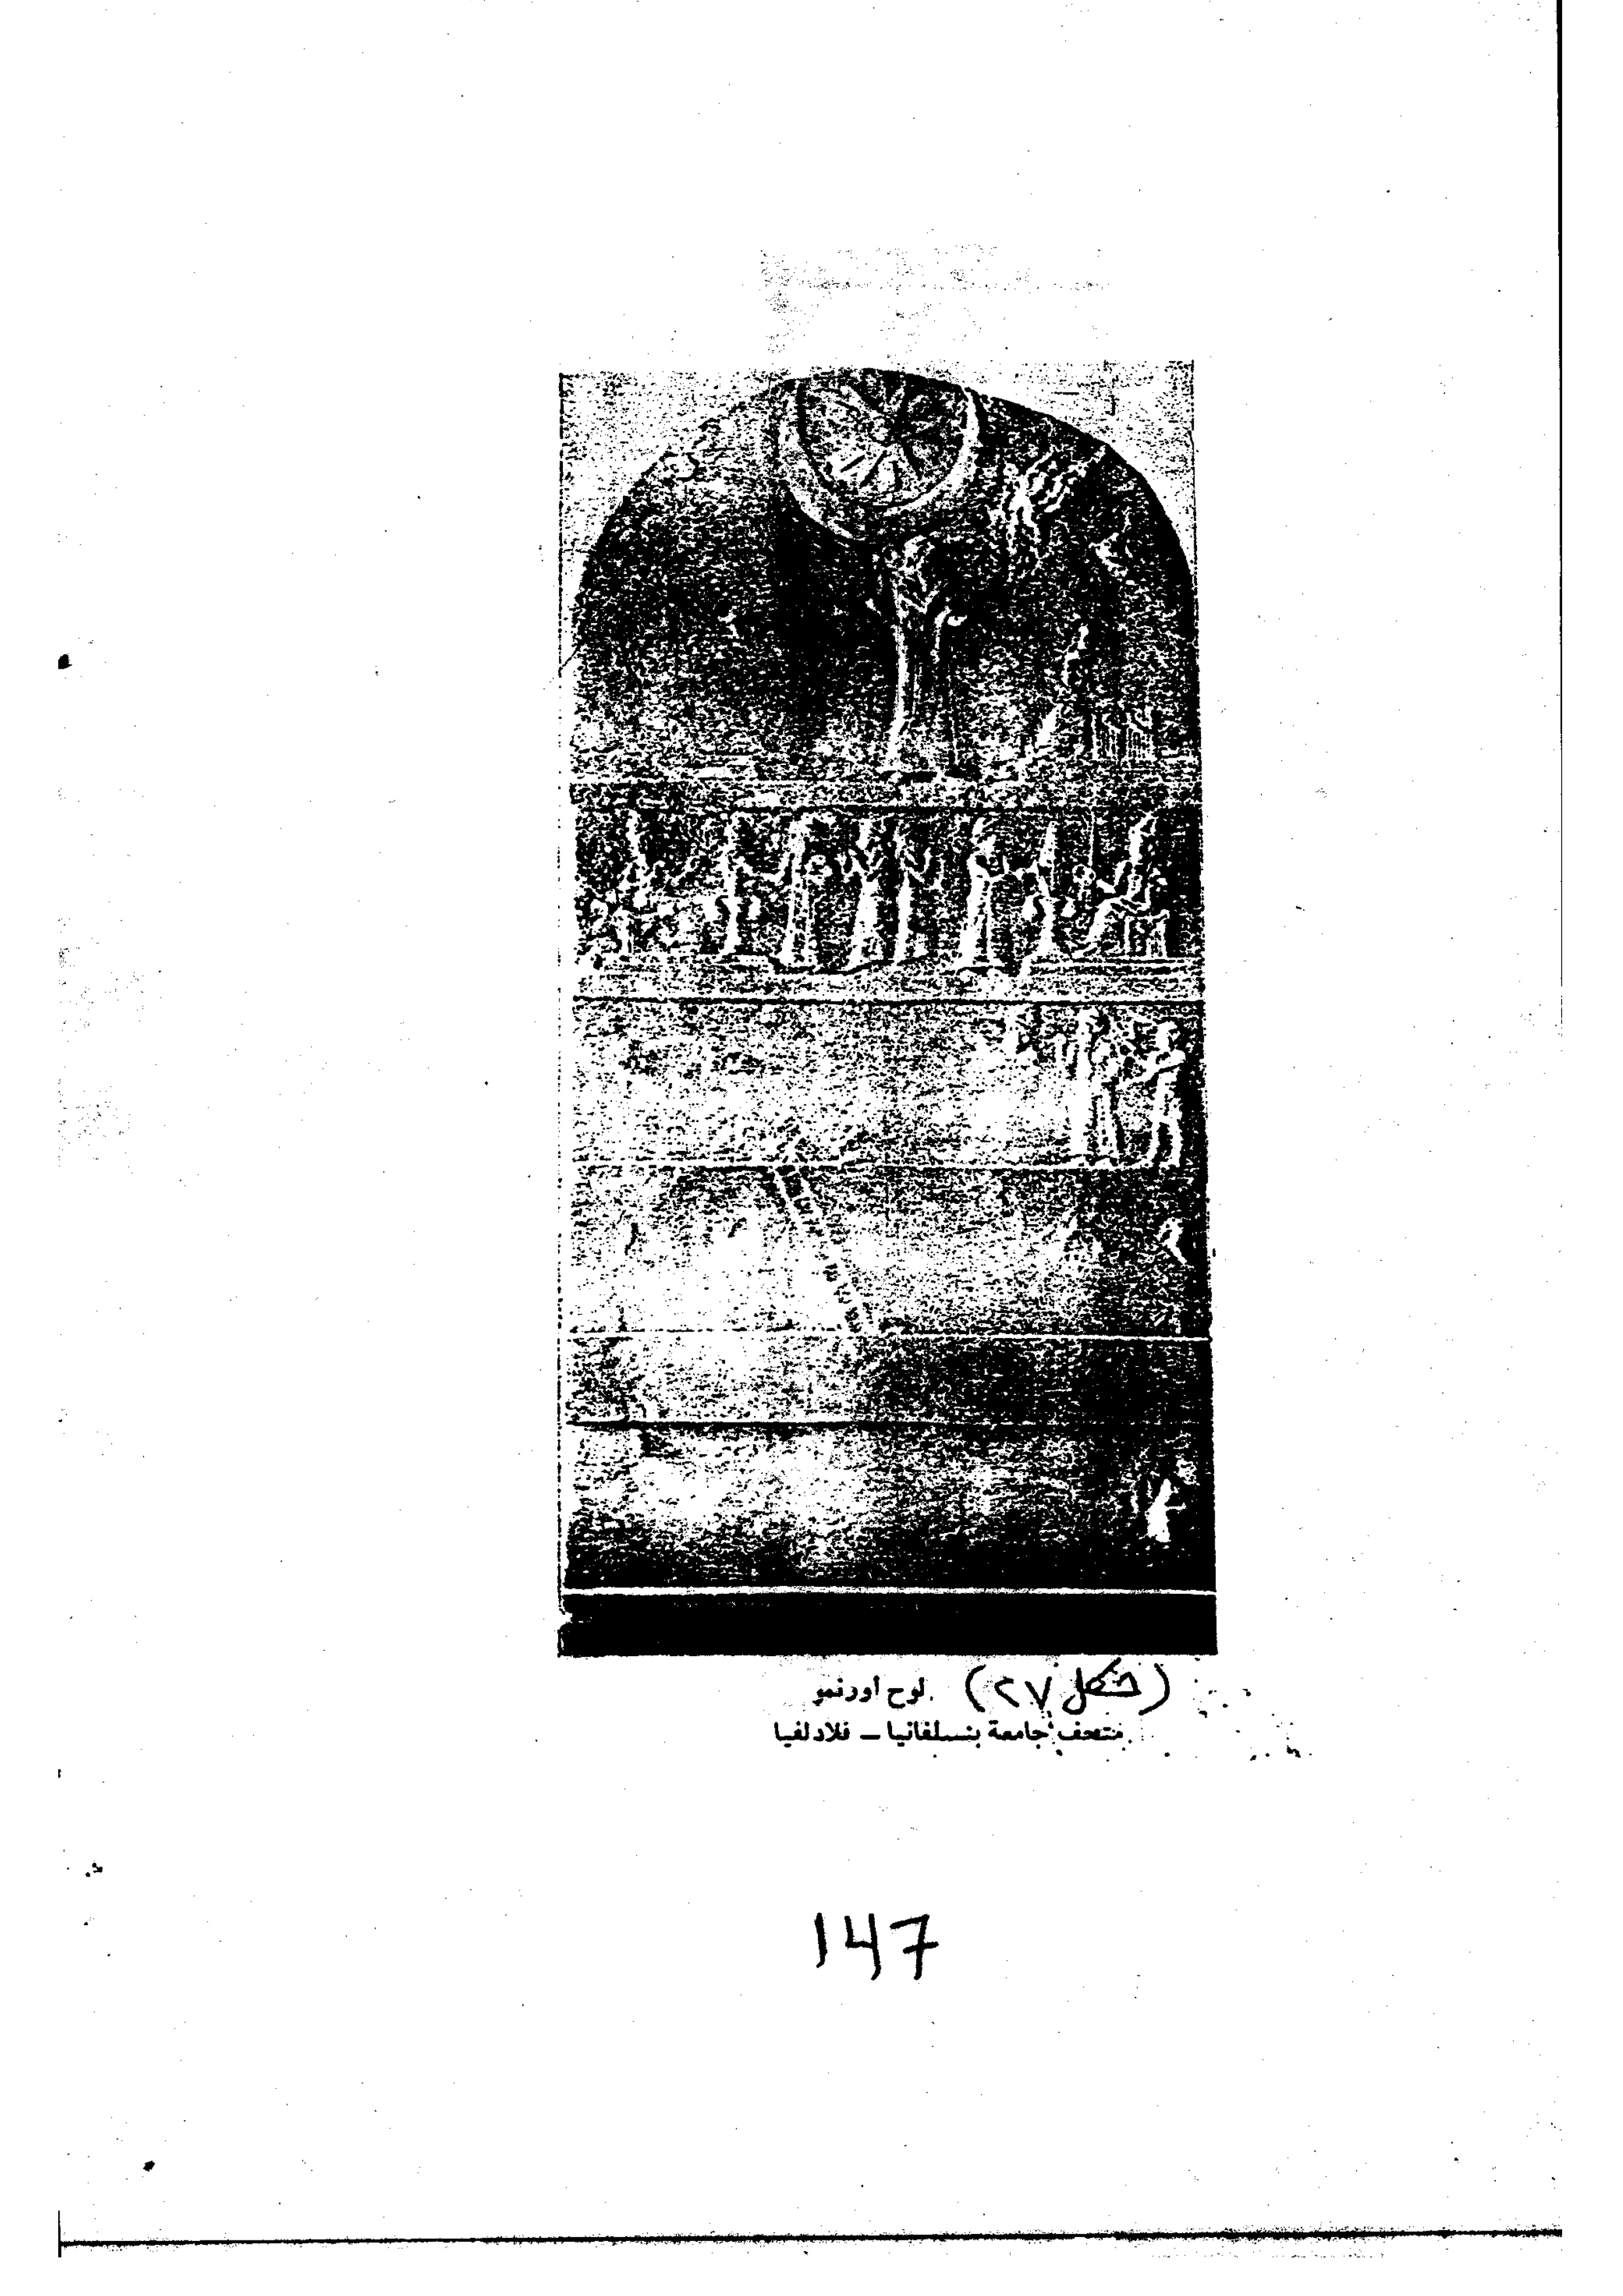 (شكل ٢٧) لوح أورنمو
متحف جامعة بنسلفانيا – فلادلفيا
147